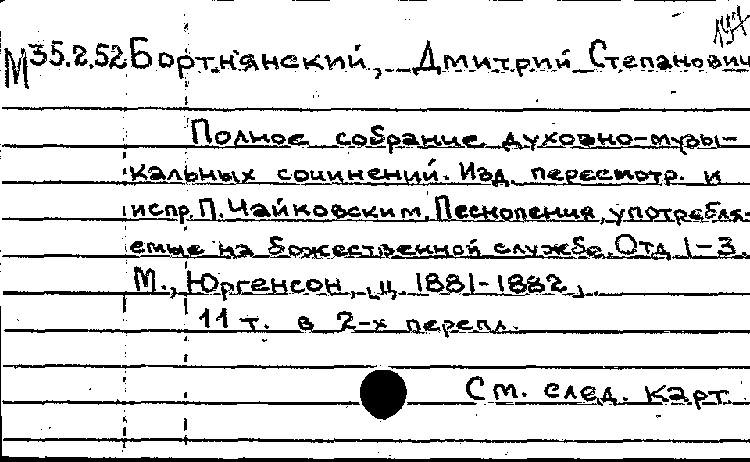 М 35.2.52 Бортнянский, Дмитрий Степанович
Полное собрание духовно-музы-
кальных сочинений. Изд. пересмотр. и
испр. П. Чайковским. Песнопения, употребля-
емые на божественной службе. Отд. 1-3.
М., Юргенсон, ц. 1881-1882,.
11 т. в 2-х перепл.
См. след. карт.